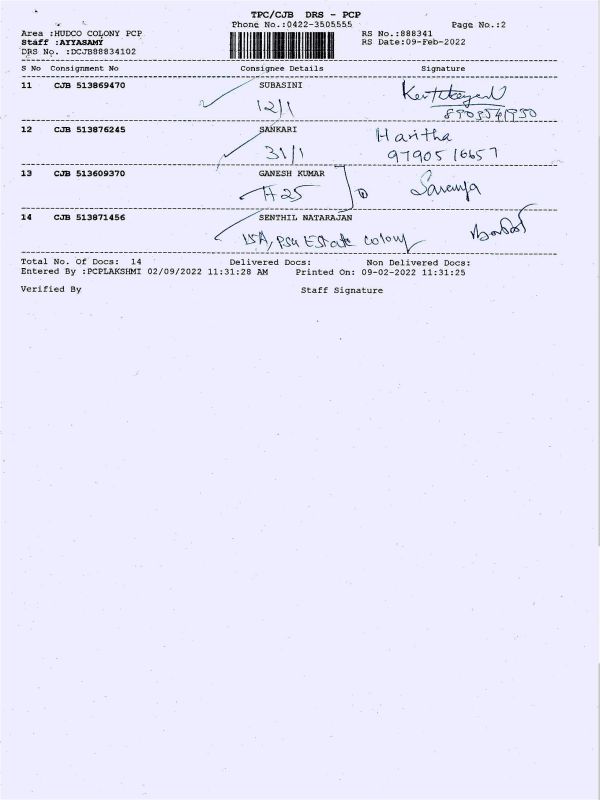 TPC/CJB DRS - PCP
Phone No.:0422-3505555 Page No.:2
Area :HUDCO COLONY PCP RS No.:888341
Staff :AYYASAMY RS Date:09-Feb-2022
DRS No. :DCJB88834102
S No Consignment No Consignee Details Signature
11 CJB 513869470 SUBASINI
12/1
12 CJB 513876245 SANKARI Haritha
31/1 9790516657
13 CJB 513609370 GANESH KUMAR
H 25 Saranya
14 CJB 513871456 SENTHIL NATARAJAN
15A, PSG Estate colony
Total No. Of Docs: 14 Delivered Docs: Non Delivered Docs:
Entered By :PCPLAKSHMI 02/09/2022 11:31:28 AM Printed On: 09-02-2022 11:31:25
Verified By Staff Signature